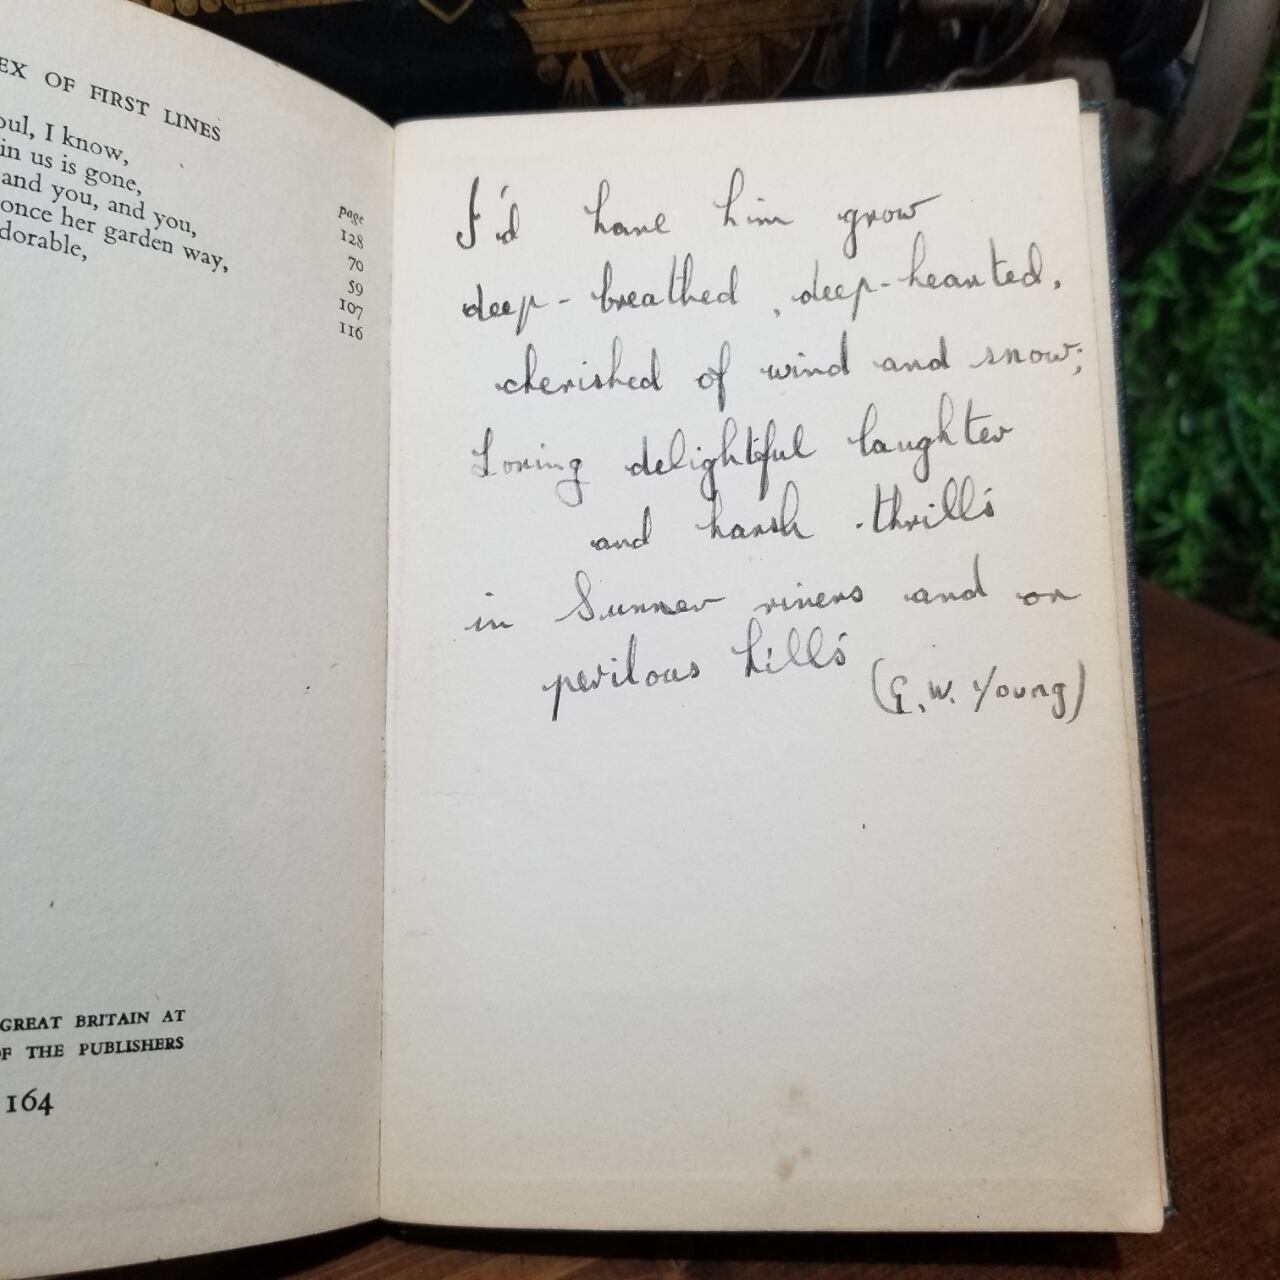 EX OF FIRST LINES
page
oul, I know, 128
in us is gone, 70
and you, and you, 59
once her garden way, 107
dorable, 116
GREAT BRITAIN AT
OF THE PUBLISHERS
164
I'd have him grow
deep-breathed, deep-hearted,
cherished of wind and snow;
Loving delightful laughter
and harsh thrills
in Summer rivers and on
perilous hills
(G. W. Young)